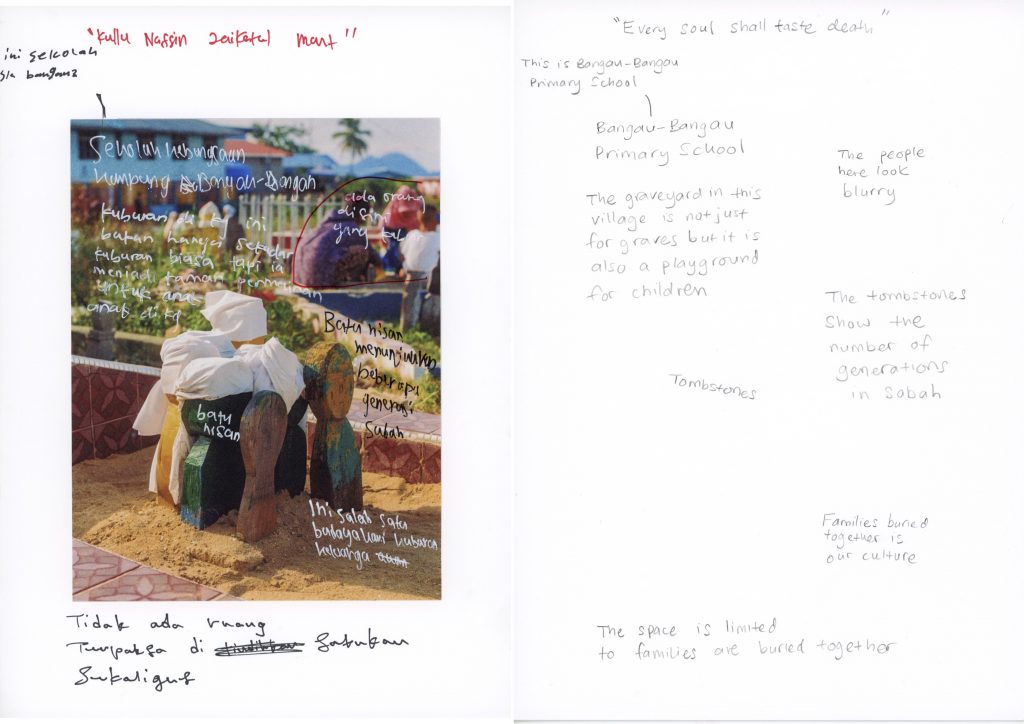 "Kullu Nafsin Zaikatul maut"
ini sekolah
s/a bangau2
Sekolah kebangsaan
kampung Bangau-Bangau
kuburan di kg ini
bukan hanya sekadar
kuburan biasa tapi ia
menjadi taman permainan
untuk anak
anak di kg
ada orang
disini
yang kabur
Batu nisan
menunjukkan
beberapa
generasi
Sabah
batu
nisan
Ini salah satu
budaya kami kuburan
keluarga
Tidak ada ruang
Terpaksa di satukan
Sekaligus
"Every soul shall taste death"
This is Bangau-Bangau
Primary School
Bangau-Bangau
Primary School
The people
here look
blurry
The graveyard in this
village is not just
for graves but it is
also a playground
for children
The tombstones
show the
number of
generations
in Sabah
Tombstones
Families buried
together is
our culture
The space is limited
to families are buried together